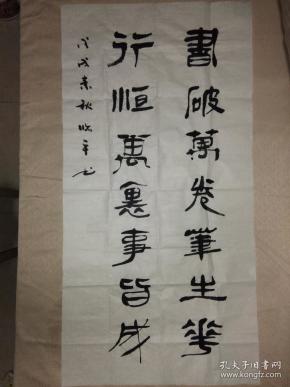 書破萬卷筆生花
行恒萬里事皆成
戊戌末秋
孔夫子旧书网
www.kongfz.com